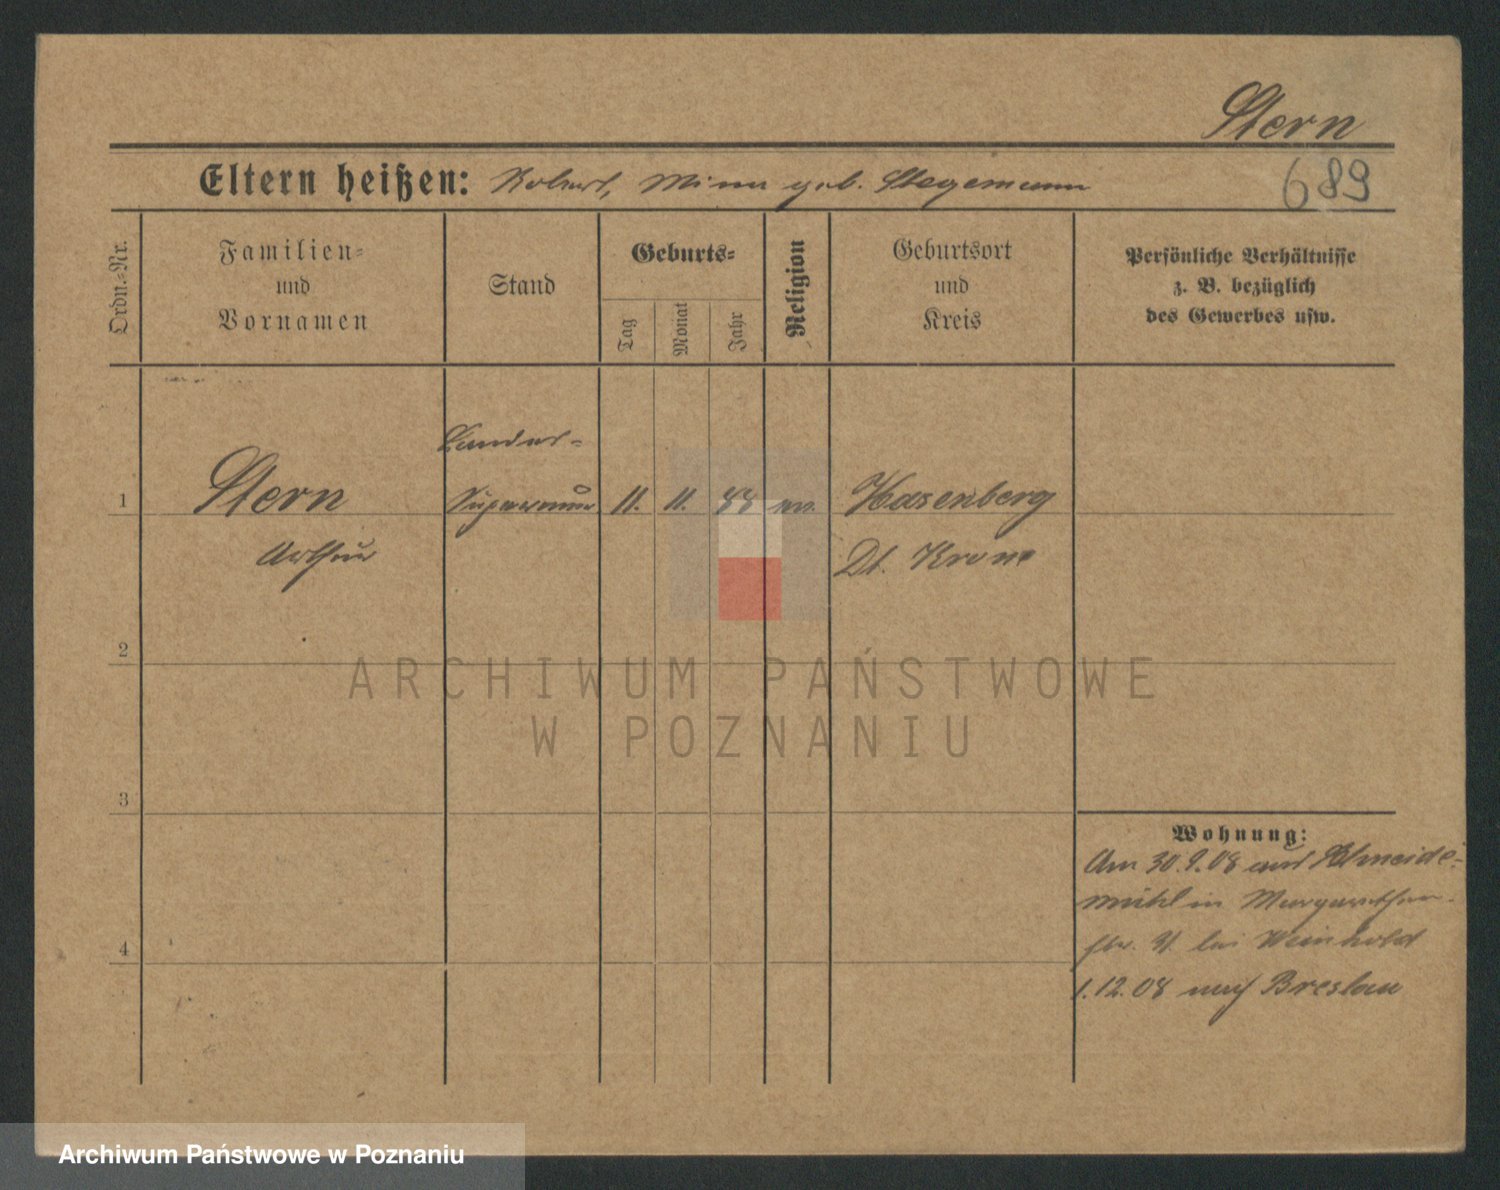 Stern
689
Eltern heißen: Robert, Minna geb. Stegemann
Ordn.-Nr.
Familien-
und
Vornamen
Stand
Geburts-
Tag
Monat
Jahr
Religion
Geburtsort
und
Kreis
Persönliche Verhältnisse
z. B. bezüglich
des Gewerbes usw.
1
Stern
Arthur
Landes-
Supernum
11. 11. 88 ev.
Hasenberg
Dt. Krone
2
3
4
Wohnung:
Am 30.9.08 aus Schneide-
mühl in Margarethen-
str. 31 bei Weinhold
1.12.08 nach Breslau
ARCHIWUM PAŃSTWOWE
W POZNANIU
Archiwum Państwowe w Poznaniu